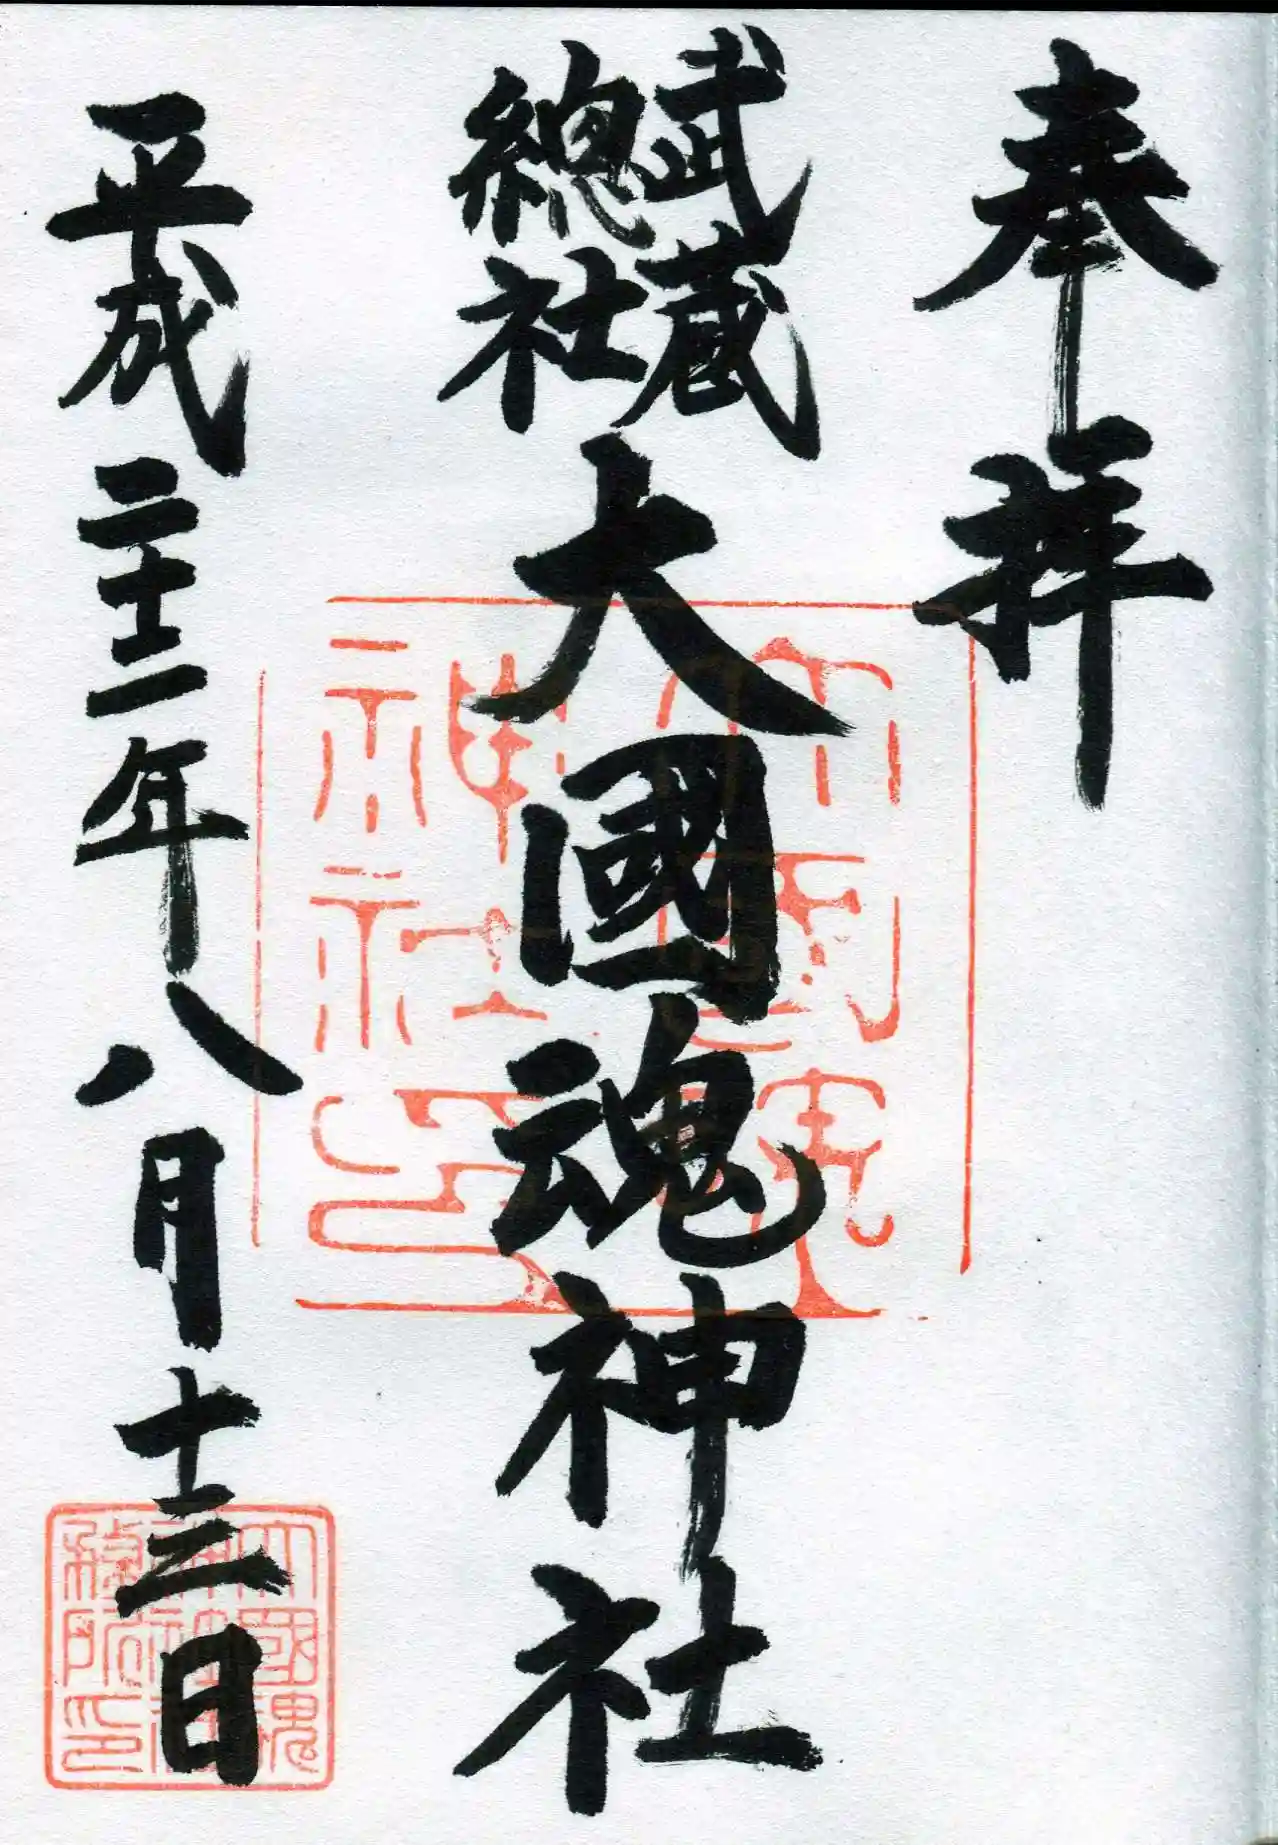 奉拝
武蔵
總社
大國魂神社
平成二十二年八月十三日
大國魂
神社印
大國魂
神社社
務所印